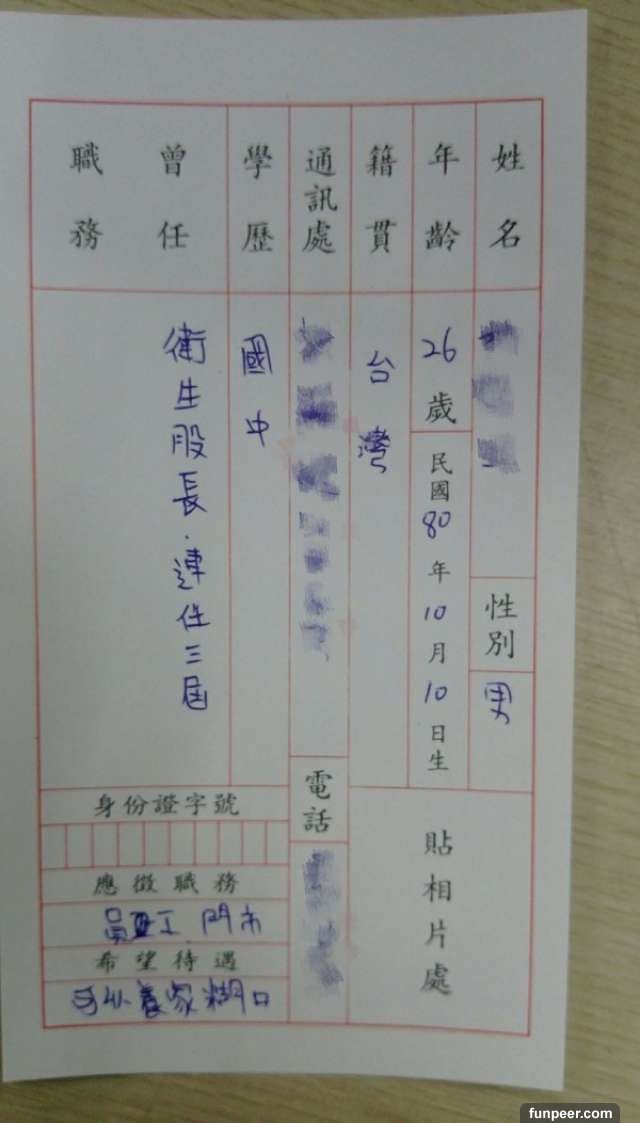 姓名
性別 男
年齡
26歲
民國80年10月10日生
籍貫
台灣
貼相片處
通訊處
電話
學歷
國中
曾任職務
衛生股長.連任三屆
身份證字號
應徵職務
員工 門市
希望待遇
可以養家糊口
funpeer.com